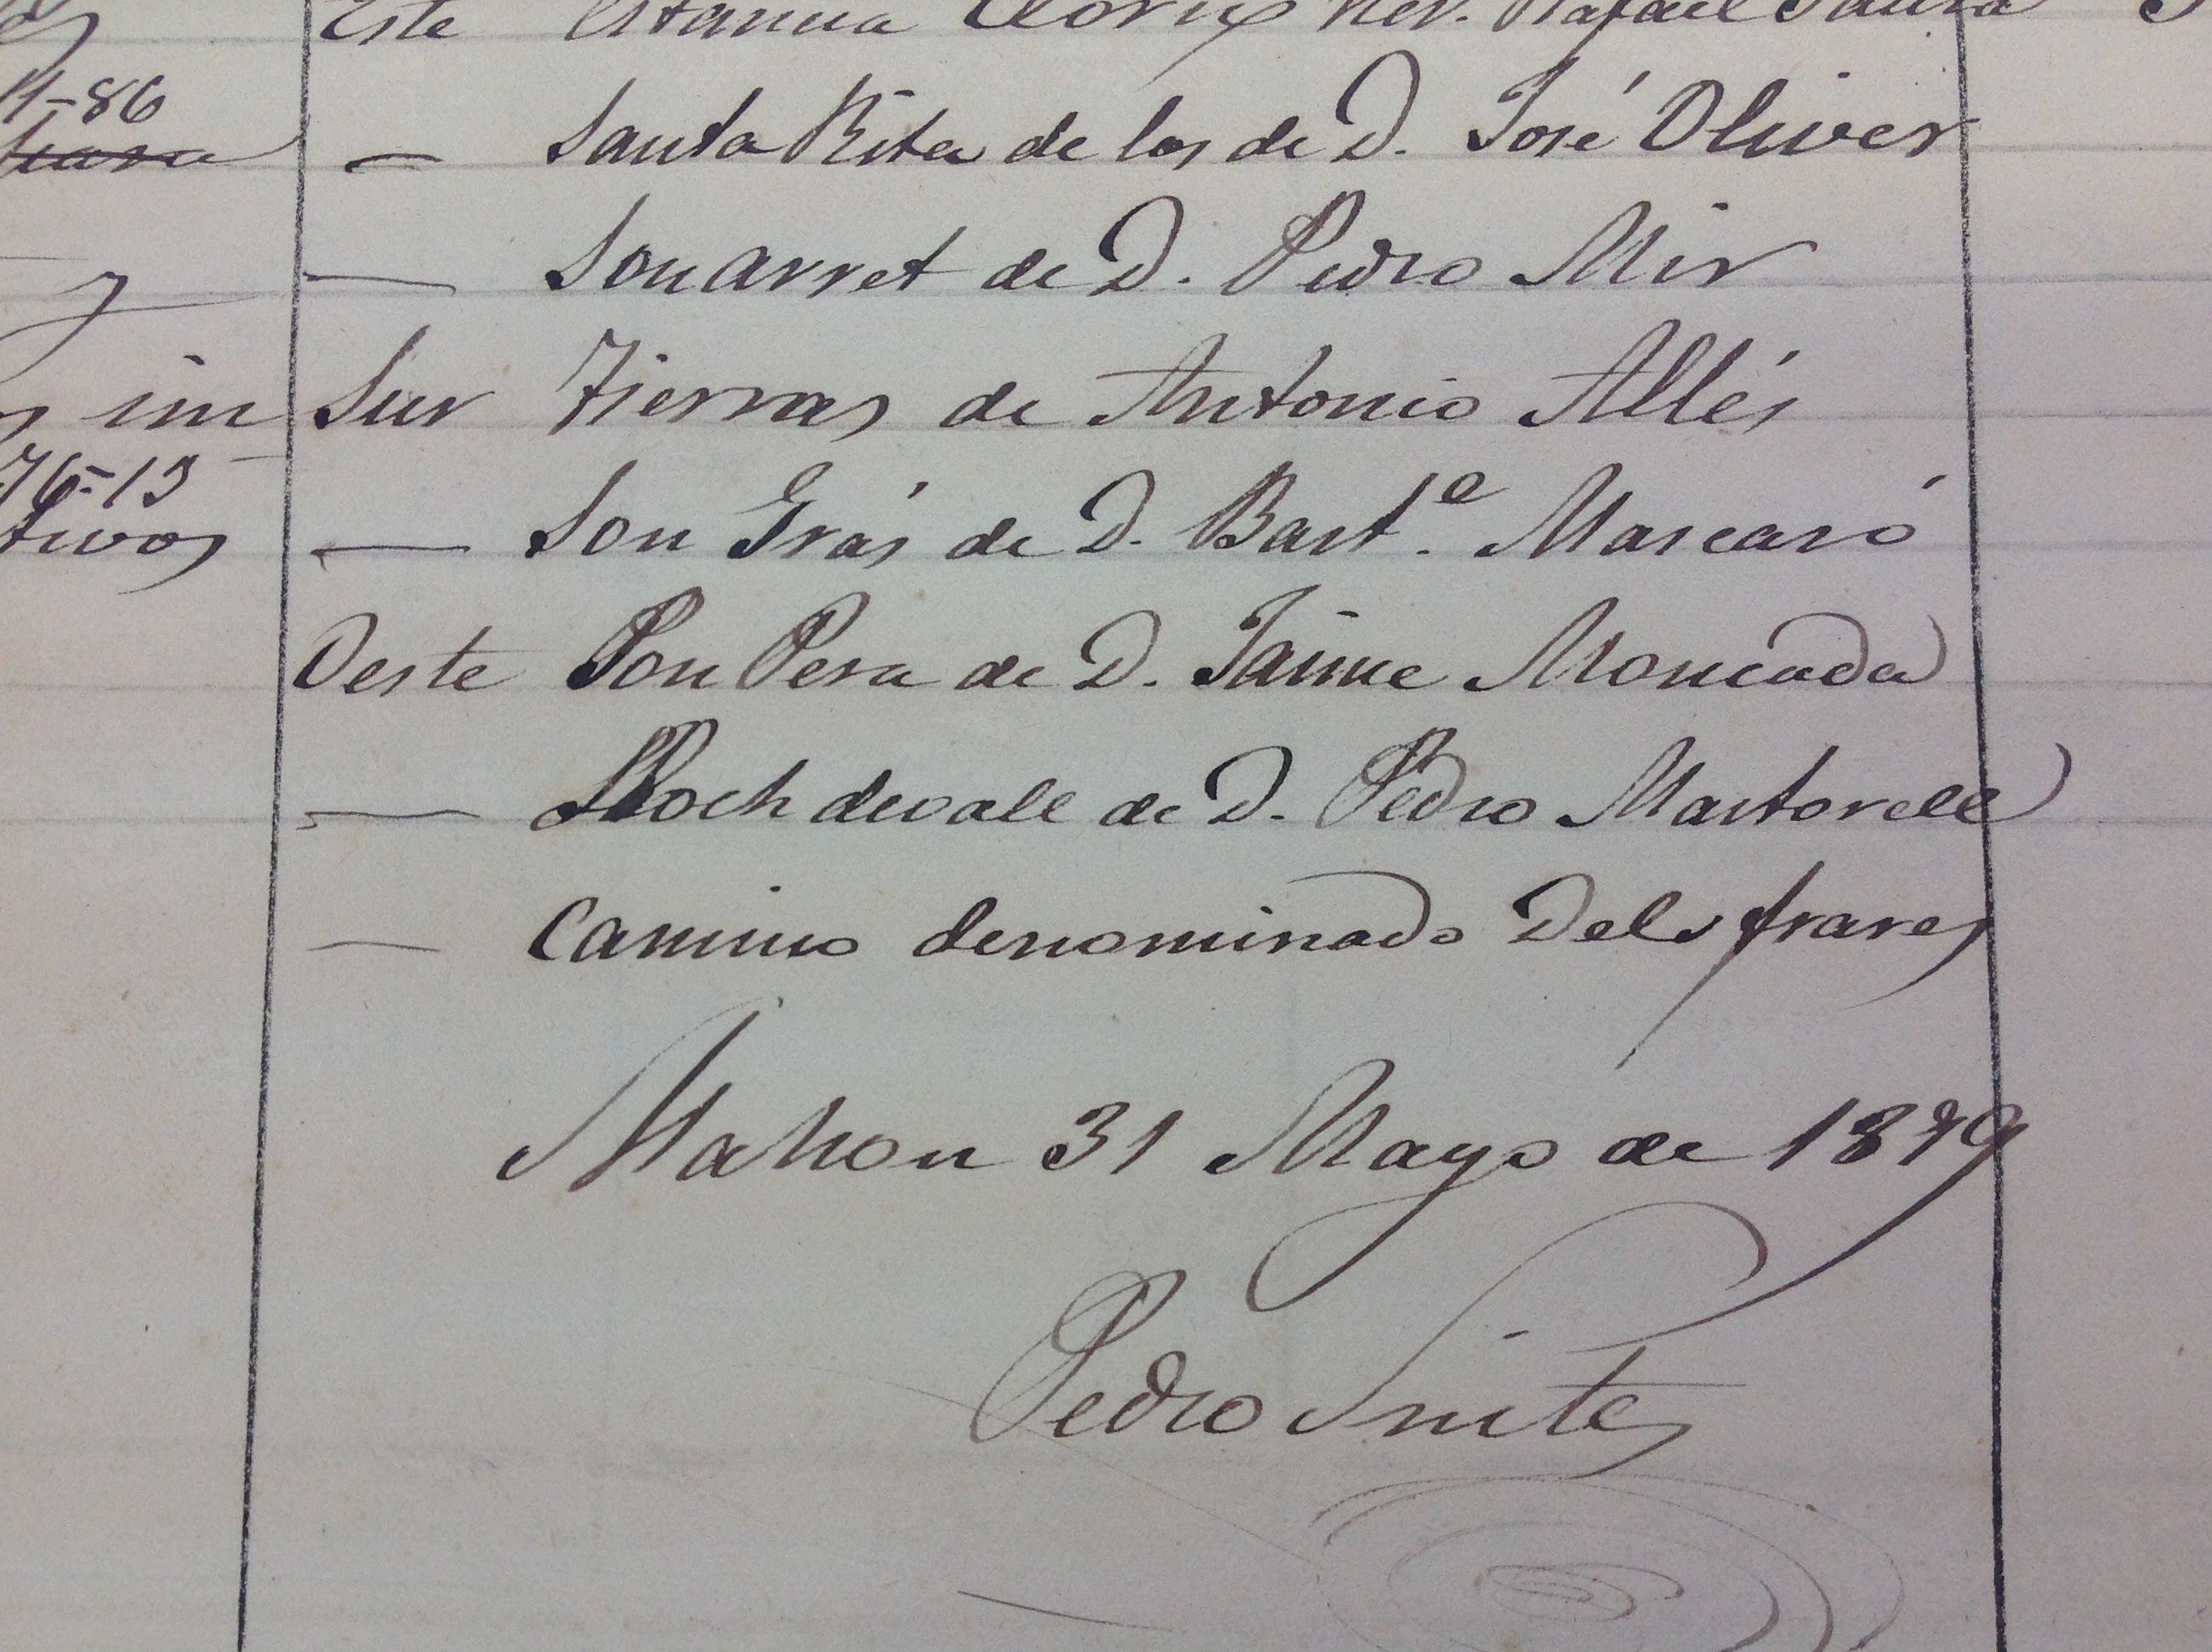 Este Estancia Cloris her. Rafael Saura
11-86
— Santa Rita de los de D. José Oliver
— Son arret de D. Pedro Mir
y
im Sur Tierras de Antonio Allés
76-13
tivos — Son Grás de D. Bart.e Mascaró
Oeste Son Pera de D. Jaime Moncada
— Lloch devall de D. Pedro Martorell
— Camino denominado Dels frares
Mahon 31 Mayo de 1879
Pedro Sintes